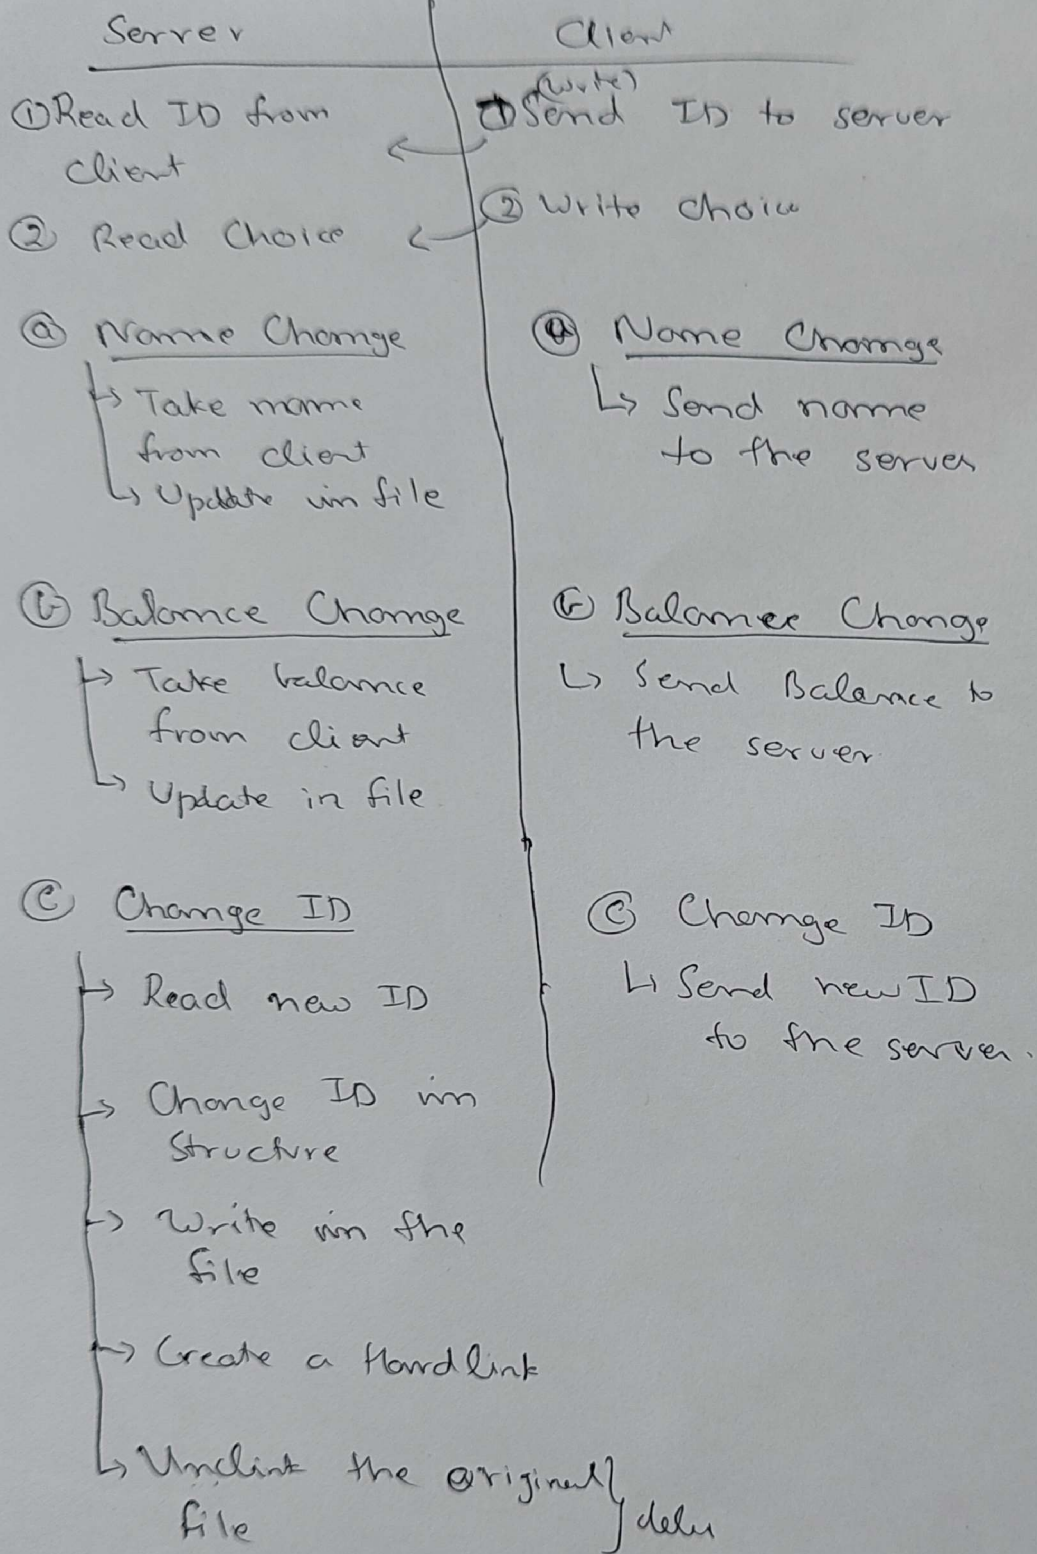 Server
① Read ID from
client
② Read Choice
ⓐ Name Change
↳ Take name
from client
↳ Update in file
ⓑ Balance Change
↳ Take balance
from client
↳ Update in file
ⓒ Change ID
↳ Read new ID
↳ Change ID in
Structure
↳ Write in the
file
↳ Create a Hardlink
↳ Unlink the original
file
Client
(write)
① Send ID to server
② Write choice
ⓐ Name Change
↳ Send name
to the server
ⓑ Balance Change
↳ Send Balance to
the server
ⓒ Change ID
↳ Send new ID
to the server.